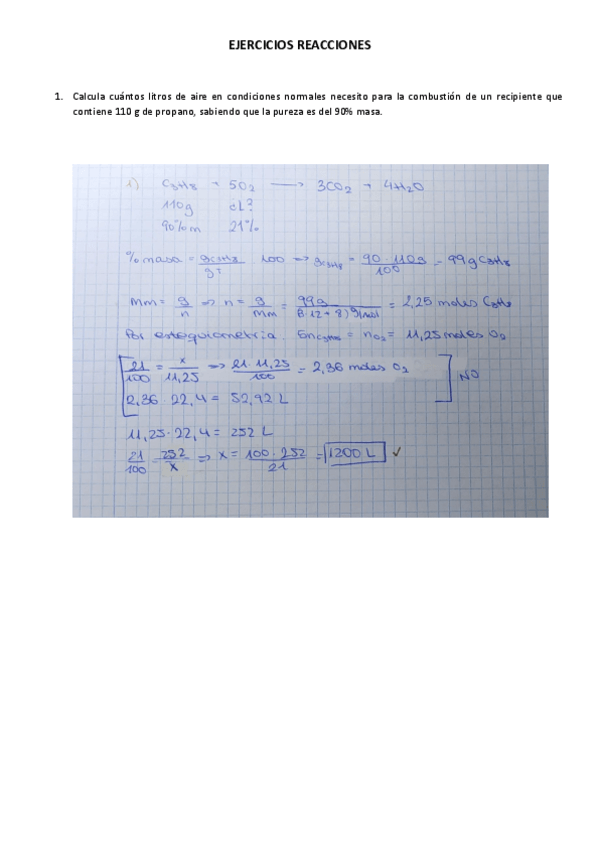 EJERCICIOS REACCIONES
1. Calcula cuántos litros de aire en condiciones normales necesito para la combustión de un recipiente que
contiene 110 g de propano, sabiendo que la pureza es del 90% masa.
1) C3H8 + 5O2 → 3CO2 + 4H2O
110g ¿L?
90%m 21%
% masa = gC3H8 / g? · 100 ⇒ gC3H8 = 90 · 110g / 100 = 99g C3H8
Mm = g / n ⇒ n = g / mm = 99g / (3·12 + 8) g/mol = 2,25 moles C3H8
Por estequiometría: 5nC3H8 = nO2 = 11,25 moles O2
21 / 100 = x / 11,25 ⇒ 21 · 11,25 / 100 = 2,36 moles O2
NO
2,36 · 22,4 = 52,92 L
11,25 · 22,4 = 252 L
21 / 100 = 252 / x ⇒ x = 100 · 252 / 21 = 1200 L ✓